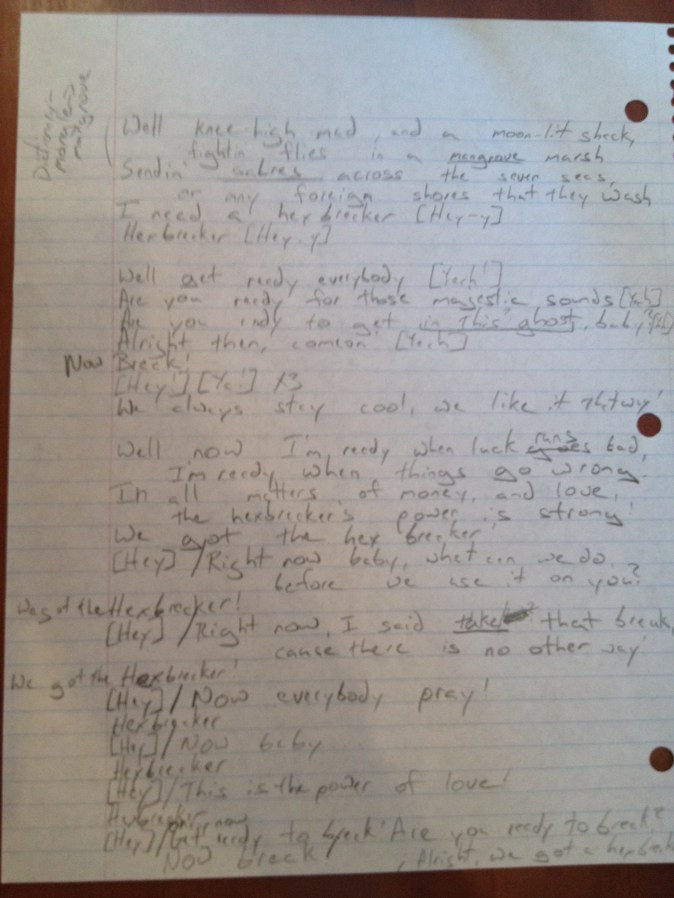 Dictionary -
mangrove
Well knee high mud, and a moon-lit shack,
fightin flies in a mangrove marsh
Sendin' across the seven seas,
or any foreign shores that they wash
I need a hexbreaker [Hey-y]
Hexbreaker [Hey-y]
Well get ready everybody [Yeah!]
Are you ready for those majestic sounds [Yeah]
Are you ready to get in this ghost, baby? [Yeah]
Alright then, comeon! [Yeah]
Now Break!
[Hey!] [Ya!] x3
We always stay cool, we like it thtwy!
Well now I'm ready when luck runs bad,
I'm ready when things go wrong.
In all matters of money, and love,
the hexbreaker's power is strong!
We got the hex breaker!
[Hey] / Right now baby, what can we do,
before we use it on you?
We got the Hexbreaker!
[Hey] / Right now, I said take that break,
cause there is no other way
We got the Hexbreaker!
[Hey] / Now everybody pray!
Hexbreaker
[Hey] / Now baby...
Hexbreaker
[Hey] / This is the power of love!
Hexbreaker now
[Hey] / Get ready to break! Are you ready to break?
Now break! , Alright, we got a hexbreak